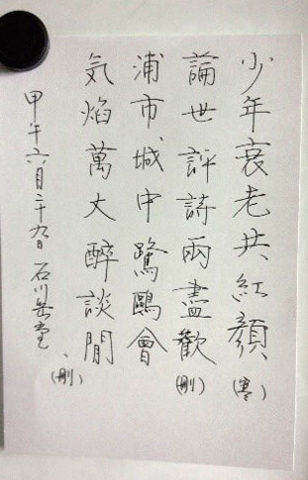 少年衰老共紅顔(寒)
論世評詩兩盡歡(刪)
浦市城中鷺鷗會
気焰萬丈醉談閒(刪)
甲午六月二十九日 石川岳堂、